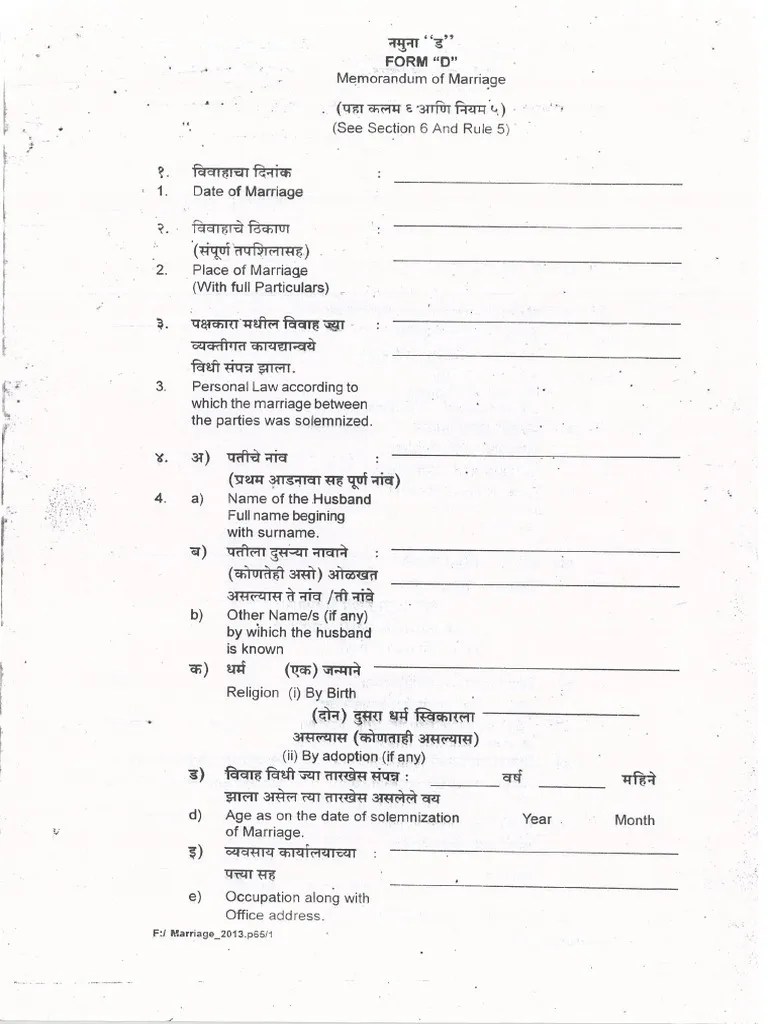 नमुना "ड"
FORM "D"
Memorandum of Marriage
(पहा कलम ६ आणि नियम ५)
(See Section 6 And Rule 5)
१. विवाहाचा दिनांक :
1. Date of Marriage
२. विवाहाचे ठिकाण :
(संपूर्ण तपशिलासह)
2. Place of Marriage
(With full Particulars)
३. पक्षकारा मधील विवाह ज्या :
व्यक्तीगत कायद्यान्वये
विधी संपन्न झाला.
3. Personal Law according to
which the marriage between
the parties was solemnized.
४. अ) पतीचे नांव :
(प्रथम आडनावा सह पूर्ण नांव)
4. a) Name of the Husband
Full name begining
with surname.
ब) पतीला दुसऱ्या नावाने :
(कोणतेही असो) ओळखत
असल्यास ते नांव /ती नांवे
b) Other Name/s (if any)
by wihich the husband
is known
क) धर्म (एक) जन्माने
Religion (i) By Birth
(दोन) दुसरा धर्म स्विकारला
असल्यास (कोणताही असल्यास)
(ii) By adoption (if any)
ड) विवाह विधी ज्या तारखेस संपन्न : वर्ष महिने
झाला असेल त्या तारखेस असलेले वय
d) Age as on the date of solemnization Year Month
of Marriage.
इ) व्यवसाय कार्यालयाच्या :
पत्त्या सह
e) Occupation along with
Office address.
F:/ Marriage_2013.p65/1